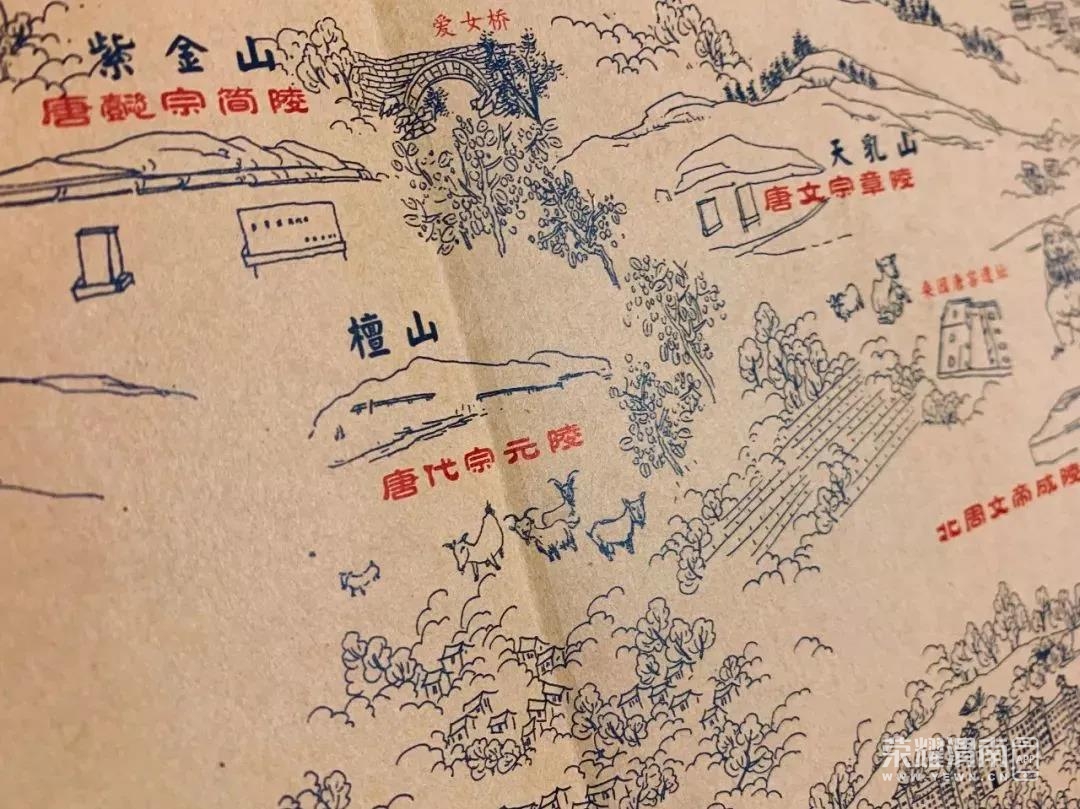 爱女桥
紫金山
唐懿宗简陵
天乳山
唐文宗章陵
唐窑遗址
檀山
唐代宗元陵
北周文帝成陵
荣耀渭南网
APP
WWW.YSWN.CN